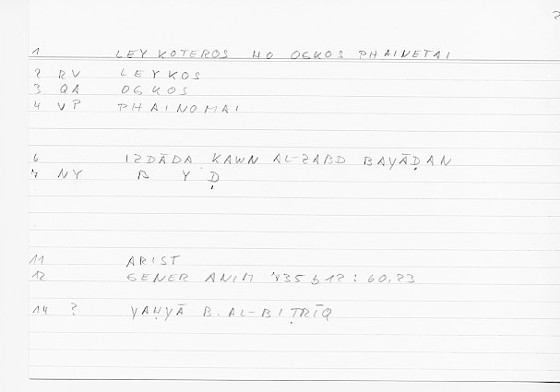 1 LEYKOTEROS HO OGKOS PHAINETAI
2 RV LEYKOS
3 QA OGKOS
4 VP PHAINOMAI
6 IZDĀDA KAWN AL-ZABD BAYĀḌAN
7 NY B Y Ḍ
11 ARIST
12 GENER ANIM 735 b 12 : 60.23
14 ? YAḤYĀ B. AL-BIṬRĪQ